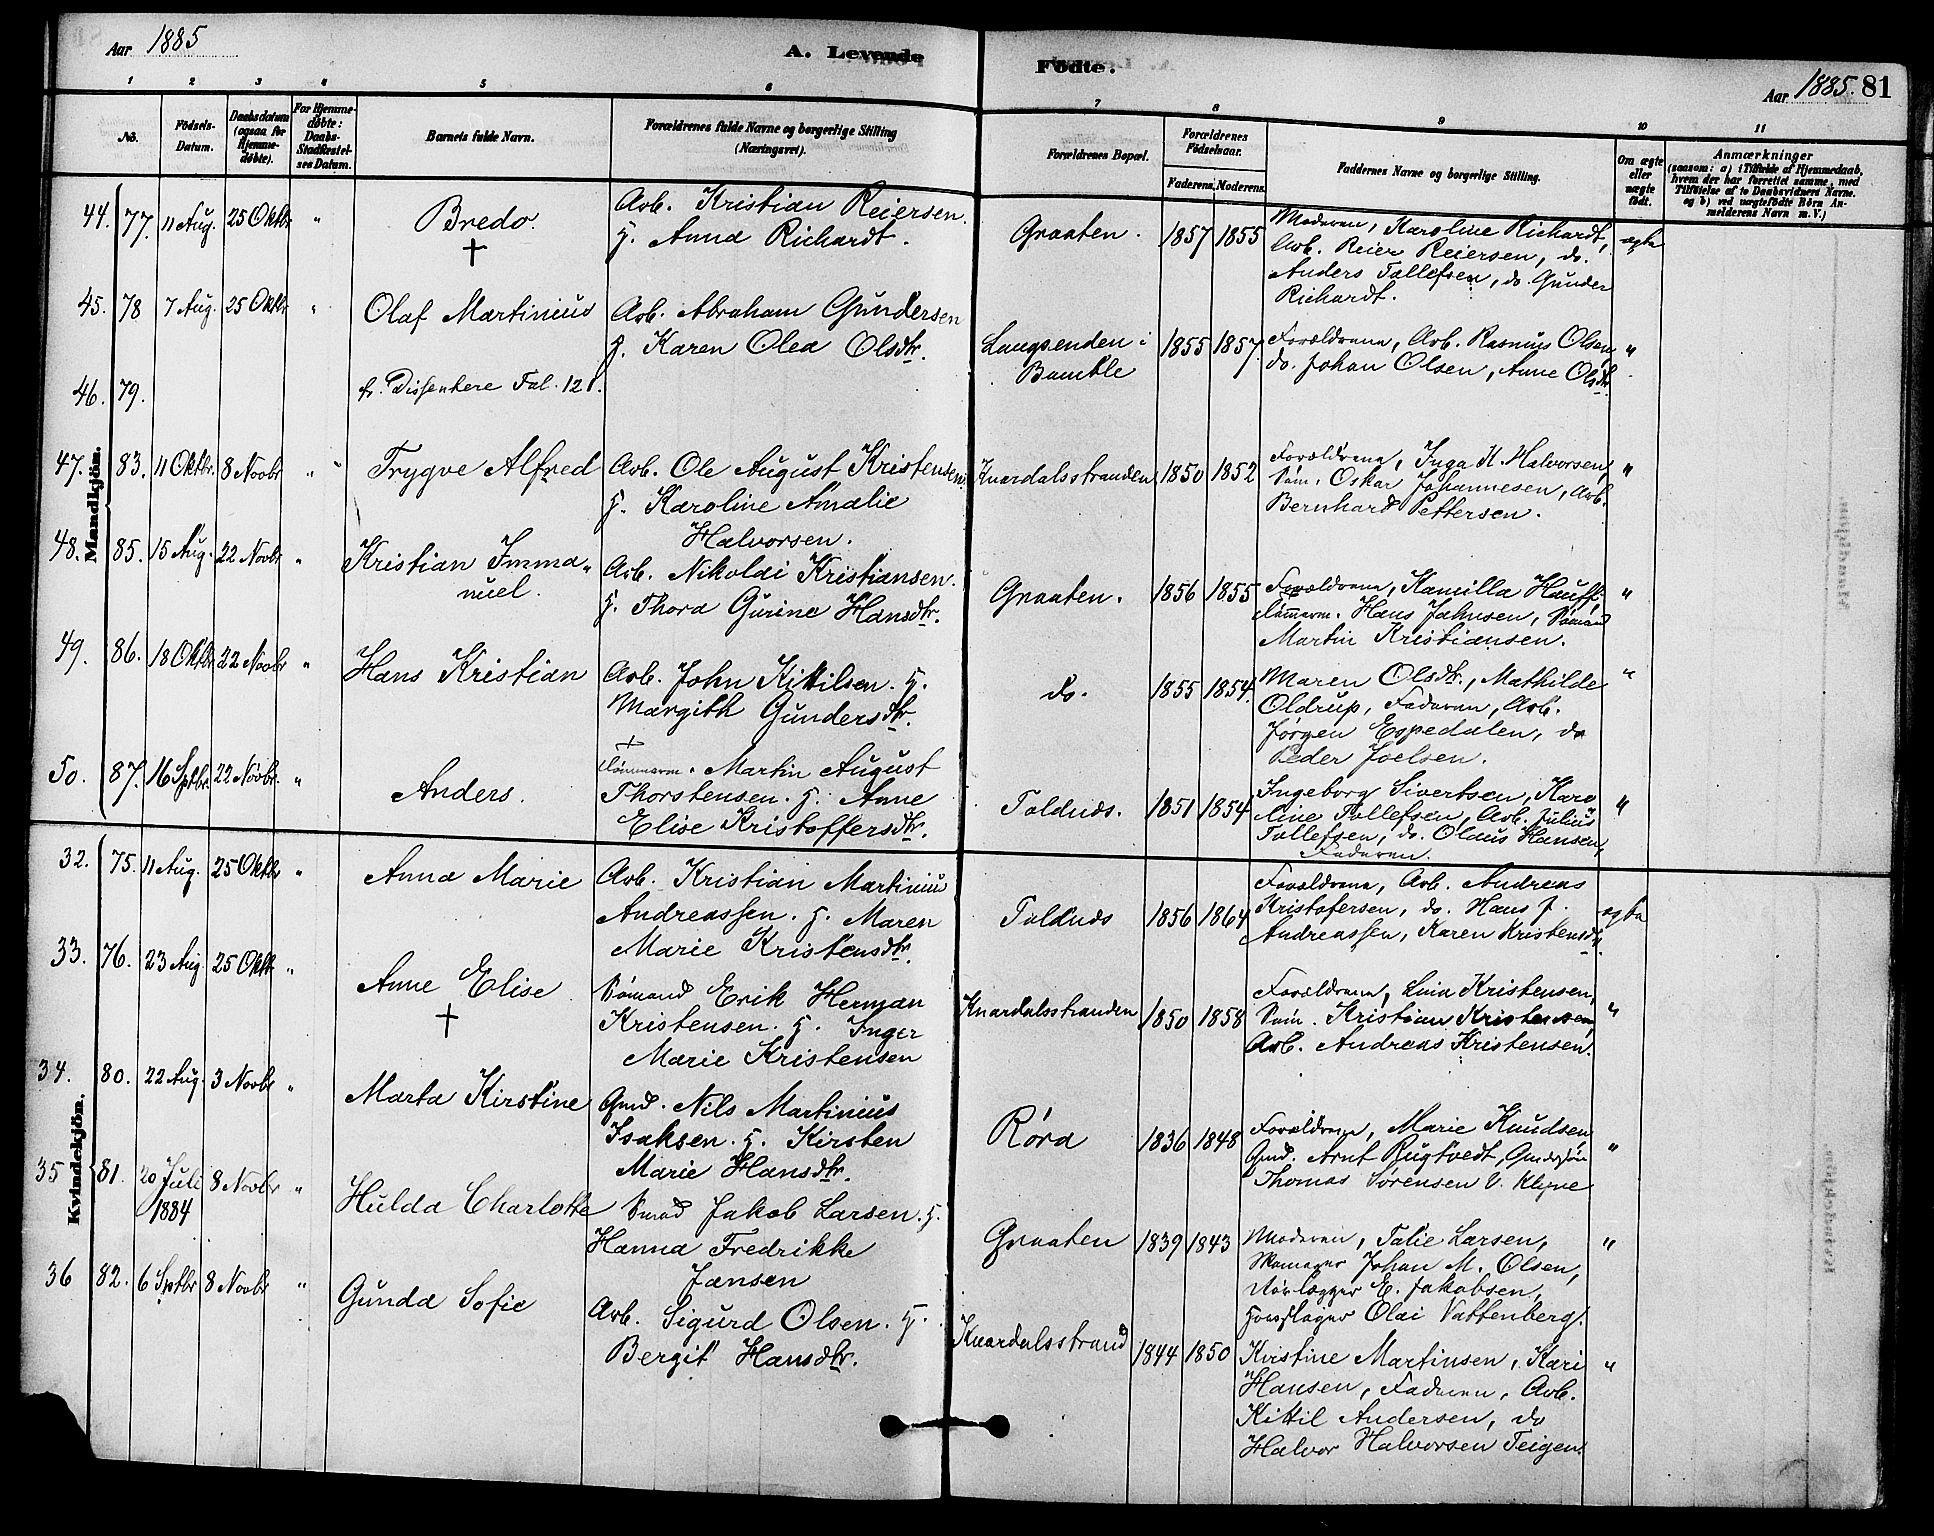 Aar 1885
A. Levende
Fødte.
Aar 1885. 81
1 2 3 4 5 6 7 8 9 10 11
No.
Fødsels-Datum.
Daabsdatum (ogsaa for Hjemmedøbte).
For Hjemmedøbte: Daabs-Stadfæstelses Datum.
Barnets fulde Navn.
Forældrenes fulde Navne og borgerlige Stilling (Næringsvei).
Forældrenes Bopæl.
Forældrenes Fødselsaar.
Faderens. Moderens.
Faddernes Navne og borgerlige Stilling.
Om ægte eller uægte født.
Anmærkninger
(saasom: a) i Tilfælde af Hjemmedaab,
hvem der har forrettet samme, med
Tilføielse af to Daabsvidners Navne.
og b) ved uægtefødte Børn Anmelderens Navn m. V.)
Mandkjön.
44. 77. 11 Aug. 25 Oktbr " Bredo. † Arb. Kristian Reiersen.
H. Anna Richardt.
Graaten. 1857 1855 Moderen, Karoline Richardt, ægte
Arb. Reier Reiersen, do.
Anders Tollefsen, do. Gunder
Richardt.
45. 78 7 Aug. 25 Oktbr " Olaf Martinius Arb. Abraham Gundersen
H. Karen Olea Olsdtr.
Langsenden i Bamble 1855 1857. Forældrene, Arb. Rasmus Olsen, "
do. Johan Olsen, Anne Olsdtr.
46. 79. fr. Dissentere Fol. 121.
47. 83. 11 Oktbr. 8 Novbr " Trygve Alfred Arb. Ole August Kristensen.
H. Karoline Amalie
Halvorsen.
Knardalsstranden 1850 1852 Forældrene, Inga H. Halvorsen, "
Søm. Oskar Johannesen, Arb.
Bernhard Pettersen.
48. 85. 15 Aug. 22 Novbr " Kristian Imma-
nuel.
Arb. Nikolai Kristiansen.
H. Thora Gurine Hansdtr.
Graaten. 1856 1855 Forældrene, Kamilla Hauff, "
Tømmerm. Hans Jahnsen, Sømand
Martin Kristiansen.
49. 86. 18 Oktbr 22 Novbr " Hans Kristian Arb. John Kittilsen. H.
Margith Gundersdtr.
do. 1855 1854. Maren Olsdtr., Mathilde "
Oldrup, Faderen, Arb.
Jørgen Espedalen, do
Peder Joelsen.
50. 87. 16 Sptbr. 22 Novbr. " Anders. †
Tømmerm. Martin August
Thorstensen. H. Anne
Elise Kristoffersdtr.
Toldnes. 1851 1854 Ingeborg Sivertsen, Karo "
line Tollefsen, Arb. Julius
Tollefsen, do. Olaus Hansen,
Faderen.
Kvindekjön.
32. 75. 11 Aug. 25 Oktbr " Anna Marie Arb. Kristian Martinius
Andreassen. H. Maren
Marie Kristensdtr.
Toldnes 1856 1864 Forældrene, Arb. Andreas
Kristofersen, do. Hans J. ægte
Andreassen, Karen Kristensdtr.
33. 76. 23 Aug. 25 Oktbr " Anne Elise † Sømand Erik Herman
Kristensen. H. Inger
Marie Kristensen
Knardalsstranden 1850 1858 Forældrene, Lina Kristensen, "
Søm. Kristian Kristensen,
Arb. Andreas Kristensen.
34. 80. 22 Aug. 3 Novbr " Marta Kirstine Gmd. Nils Martinius
Isaksen. H. Kirsten
Marie Hansdtr.
Røra 1836 1848 Forældrene, Marie Knudsen, "
Gmd. Arnt Rugtvedt, Gmdssøn
Thomas Sørensen V. Klyve
35 81. 20 Juli 1884 8 Novbr " Hulda Charlotte Smed Jakob Larsen. H.
Hanna Fredrikke
Jansen
Graaten 1839 1843 Moderen, Talie Larsen, "
Skomager Johan M. Olsen,
E. Jakobsen,
Olai Vattenberg.
36 82. 6 Sptbr 8 Novbr " Gunda Sofie Arb. Sigurd Olsen. H.
Bergit Hansdtr.
Knardalsstrand 1844 1850 Kirstine Martinsen, Kari "
Hansen, Faderen, Arb.
Kittil Andersen, do
Halvor Halvorsen Teigen.